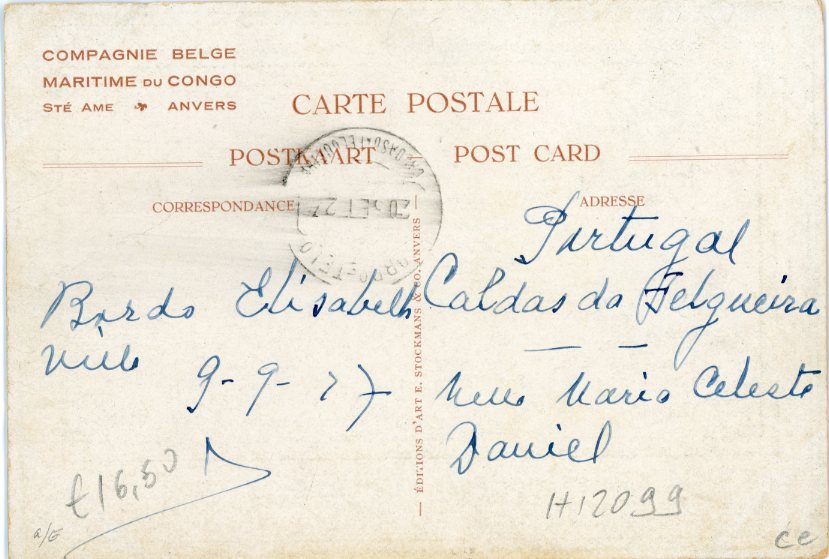 COMPAGNIE BELGE
MARITIME DU CONGO
STÉ AME ANVERS
CARTE POSTALE
POSTKAART
POST CARD
CORRESPONDANCE
ADRESSE
20 SET 27
ÉDITIONS D'ART E. STOCKMANS & CO. ANVERS
Bordo Elisabeth
ville
9-9-27
Portugal
Caldas da Felgueira
Melle Maria Celeste
Daniel
£16,50
H12099
a/G
ce